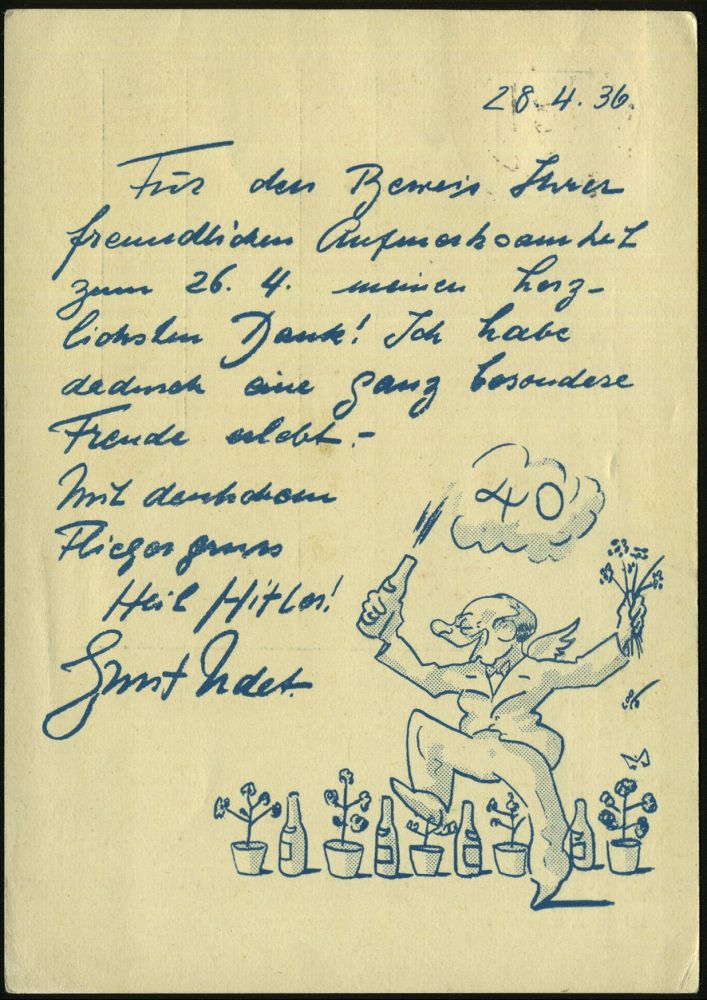 28.4.36.
Für den Beweis Ihrer
freundlichen Aufmerksamkeit
zum 26. 4. meinen herz-
lichsten Dank! Ich habe
dadurch eine ganz besondere
Freude erlebt.-
Mit deutschem
Fliegergruss
Heil Hitler!
Ernst Udet.
40